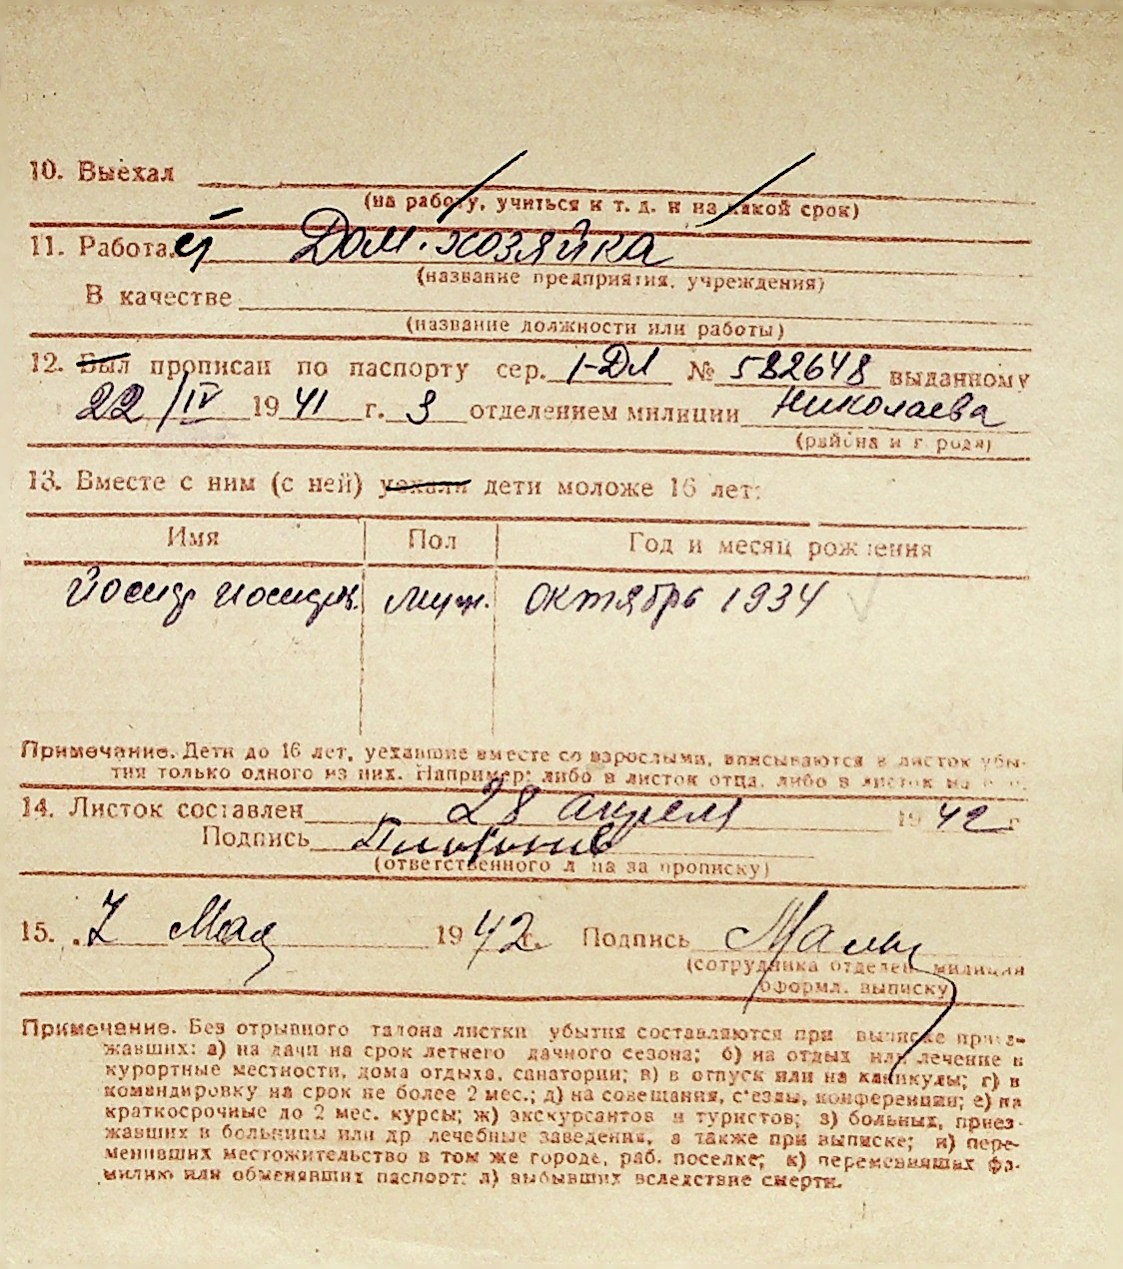 10. Выехал
(на работу, учиться и т. д. и на какой срок)
11. Работает Дом. хозяйка
(название предприятия, учреждения)
В качестве
(название должности или работы)
12. Был прописан по паспорту сер. I-ДЛ № 582648 выданному
22/IV 1941 г. 3 отделением милиции Николаева
(района и города)
13. Вместе с ним (с ней) уехали дети моложе 16 лет:
Имя Пол Год и месяц рождения
Иосиф муж. октябрь 1934
Примечание. Дети до 16 лет, уехавшие вместе со взрослыми, вписываются в листок убы-
тия только одного из них. Например: либо в листок отца, либо в листок
14. Листок составлен 28 апреля 1942 г
Подпись
(ответственного лица за прописку)
15. 7 Мая 1942 г. Подпись
(сотрудника отделен. милиции
оформл. выписку)
Примечание. Без отрывного талона листки убытия составляются при выписке приез-
жавших: а) на дачи на срок летнего дачного сезона; б) на отдых или лечение в
курортные местности, дома отдыха, санатории; в) в отпуск или на каникулы; г) в
командировку на срок не более 2 мес.; д) на совещания, с'езды, конференции; е) на
краткосрочные до 2 мес. курсы; ж) экскурсантов и туристов; з) больных, приез-
жавших в больницы или др лечебные заведения, а также при выписке; и) пере-
менивших местожительство в том же городе, раб. поселке; к) переменивших фа-
милию или обменявших паспорт; л) выбывших вследствие смерти.